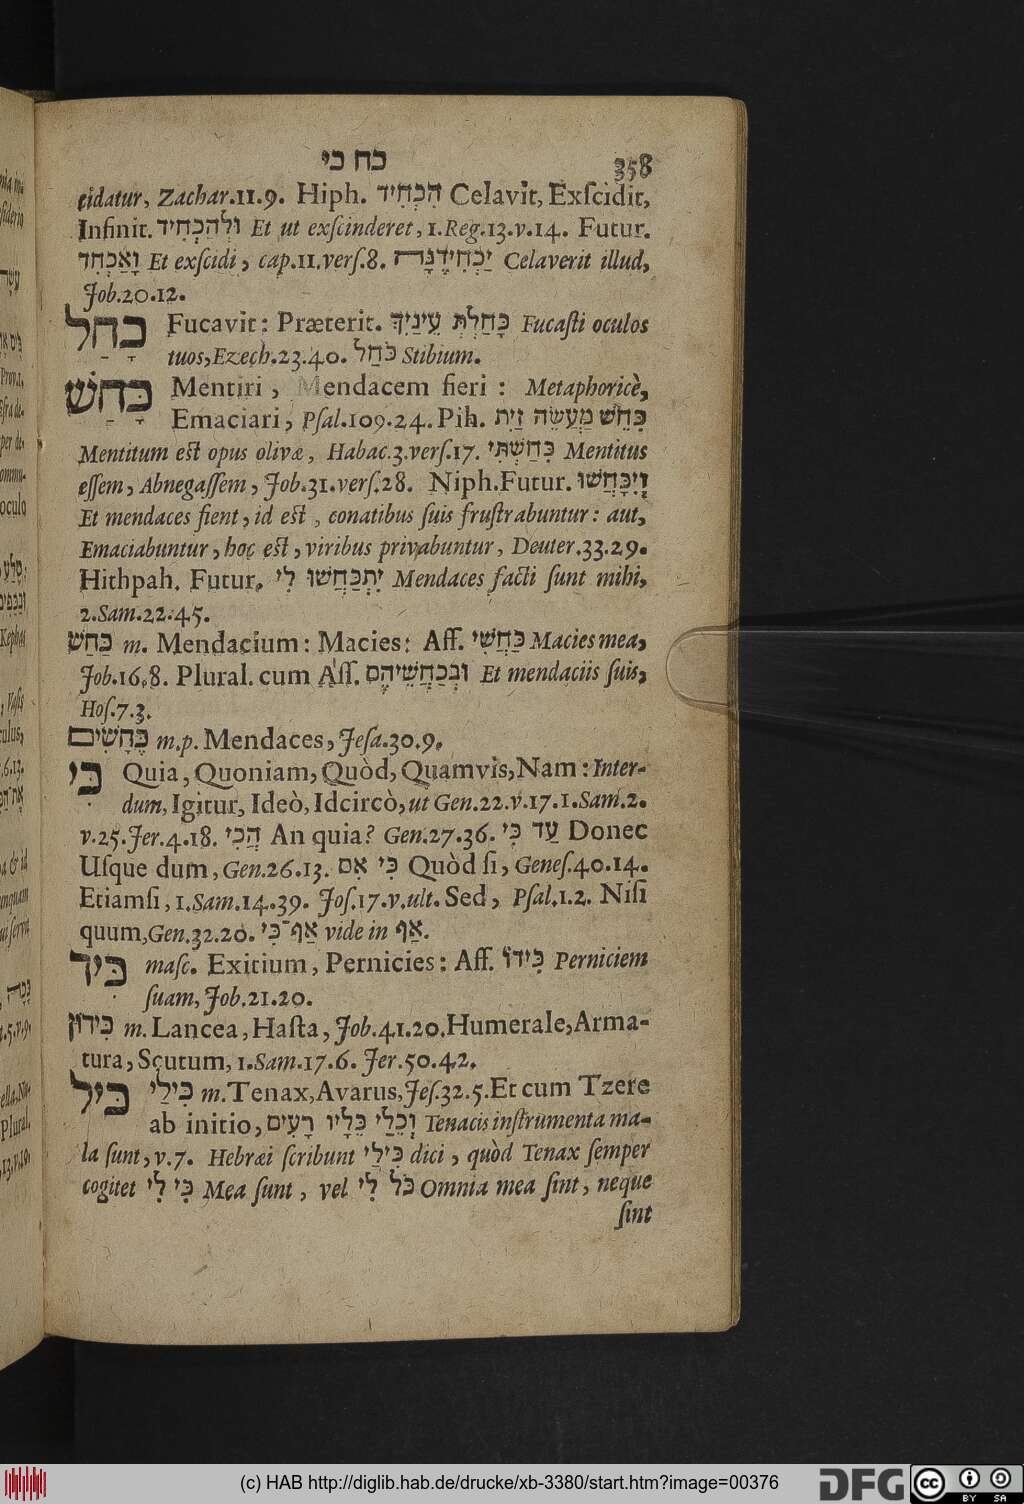 כח כי 358
cidatur, Zachar.11.9. Hiph. הִכְחִיד Celavit, Exſcidit,
Infinit. וּלְהַכְחִיד Et ut exſcinderet, 1.Reg.13.v.14. Futur.
וָאַכְחִד Et exſcidi, cap.11.verſ.8. יַכְחִידֶנָּה Celaverit illud,
Job.20.12.
כָּחַל Fucavit: Præterit. כָּחַלְתְּ עֵינַיִךְ Fucaſti oculos
tuos, Ezech.23.40. כֹּחַל Stibium.
כָּחַשׁ Mentiri, Mendacem fieri: Metaphoricè,
Emaciari, Pſal.109.24. Pih. כִּחֵשׁ מַעֲשֵׂה זַיִת
Mentitum eſt opus olivæ, Habac.3.verſ.17. כִּחַשְׁתִּי Mentitus
eſſem, Abnegaſſem, Job.31.verſ.28. Niph.Futur. וְיִכָּחֲשׁוּ
Et mendaces fient, id eſt, conatibus ſuis fruſtrabuntur: aut,
Emaciabuntur, hoc eſt, viribus privabuntur, Deuter.33.29.
Hithpah. Futur. יִתְכַּחֲשׁוּ לִי Mendaces facti ſunt mihi,
2.Sam.22.45.
כַּחַשׁ m. Mendacium: Macies: Aff. כַּחֲשִׁי Macies mea,
Job.16.8. Plural. cum Aff. וּבְכַחֲשֵׁיהֶם Et mendaciis ſuis,
Hoſ.7.3.
כֶּחָשִׁים m.p. Mendaces, Jeſa.30.9.
כִּי Quia, Quoniam, Quòd, Quamvis, Nam: Inter-
dum, Igitur, Ideò, Idcircò, ut Gen.22.v.17. 1.Sam.2.
v.25. Jer.4.18. הֲכִי An quia? Gen.27.36. עַד כִּי Donec
Uſque dum, Gen.26.13. כִּי אִם Quòd ſi, Geneſ.40.14.
Etiamſi, 1.Sam.14.39. Joſ.17.v.ult. Sed, Pſal.1.2. Niſi
quum, Gen.32.20. אַף־כִּי vide in אַף.
כִּיד maſc. Exitium, Pernicies: Aff. כִּידוֹ Perniciem
ſuam, Job.21.20.
כִּידוֹן m. Lancea, Haſta, Job.41.20. Humerale, Arma-
tura, Scutum, 1.Sam.17.6. Jer.50.42.
כִּיל כִּילַי m. Tenax, Avarus, Jeſ.32.5. Et cum Tzere
ab initio, וְכֵלַי כֵּלָיו רָעִים Tenacis inſtrumenta ma-
la ſunt, v.7. Hebræi ſcribunt כִּילַי dici, quòd Tenax ſemper
cogitet כִּי לִי Mea ſunt, vel כֹּל לִי Omnia mea ſint, neque
ſint
(c) HAB http://diglib.hab.de/drucke/xb-3380/start.htm?image=00376
DFG
cc BY SA